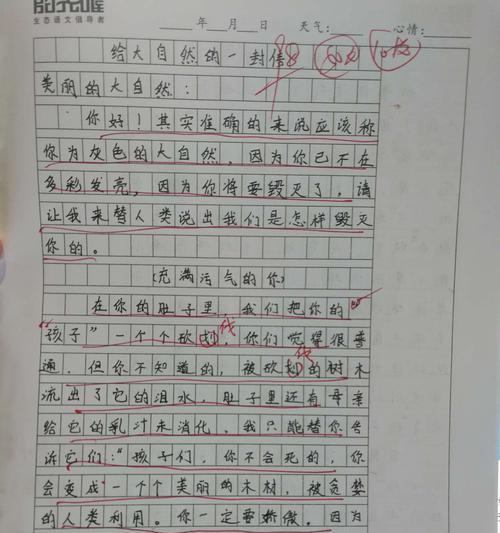 阳光喔
生态语文倡导者
年 月 日 天气: 心情:
给大自然的一封信
美丽的大自然:
你好!其实准确的来说应该称
你为灰色的大自然,因为你已不在
多彩发亮,因为你将要毁灭了,请
让我来替人类说出我们是怎样毁灭
你的。
(充满污气的你)
在你的肚子里,我们把你的
“孩子”一个个砍划伐,你们觉得很普
通,但你不知道的,被砍划伐的树木
流出了它的泪水,肚子里还有母亲
给它的乳汁未消化,我只能替你告
诉它们:“孩子们,你不会死的,你
会变成一个个美丽的木材,被贪婪
的人类利用。你一定要骄傲。因为